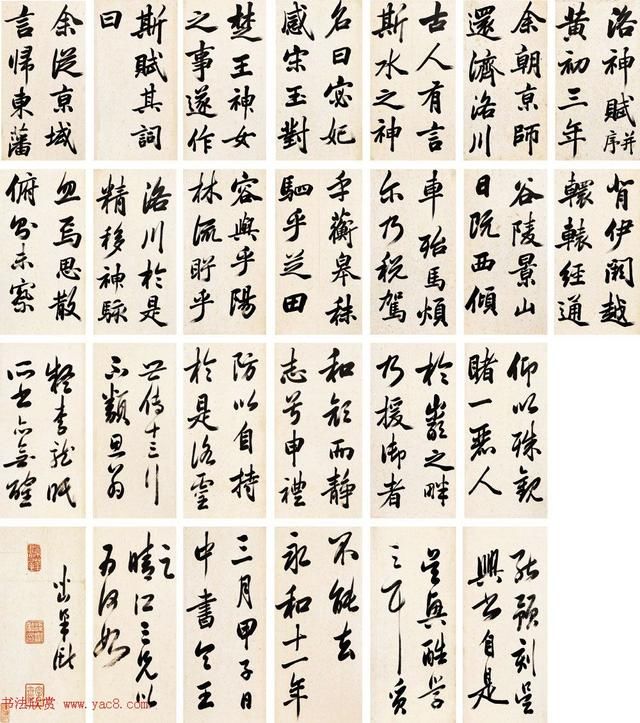 洛神賦并序
黃初三年
余朝京師
還濟洛川
古人有言
斯水之神
名曰宓妃
感宋玉對
楚王神女
之事遂作
斯賦其詞
曰
余從京域
言歸東藩
背伊闕越
轘轅經通
谷陵景山
日既西傾
車殆馬煩
尔乃税駕
乎蘅皋秣
駟乎芝田
容與乎陽
林流眄乎
洛川於是
精移神駭
忽焉思散
俯則未察
仰以殊觀
睹一麗人
於巖之畔
乃援御者
和顏而静
志兮申禮
防以自持
於是洛靈
世傳十三行
不類思翁
李龍眠
所書亦無
刻吴
興書自是
吴興酷學
之耳
不能去
永和十一年
三月甲子日
中書令王
之
晴江三兄以
为何如
书法欣赏 www.yac8.com